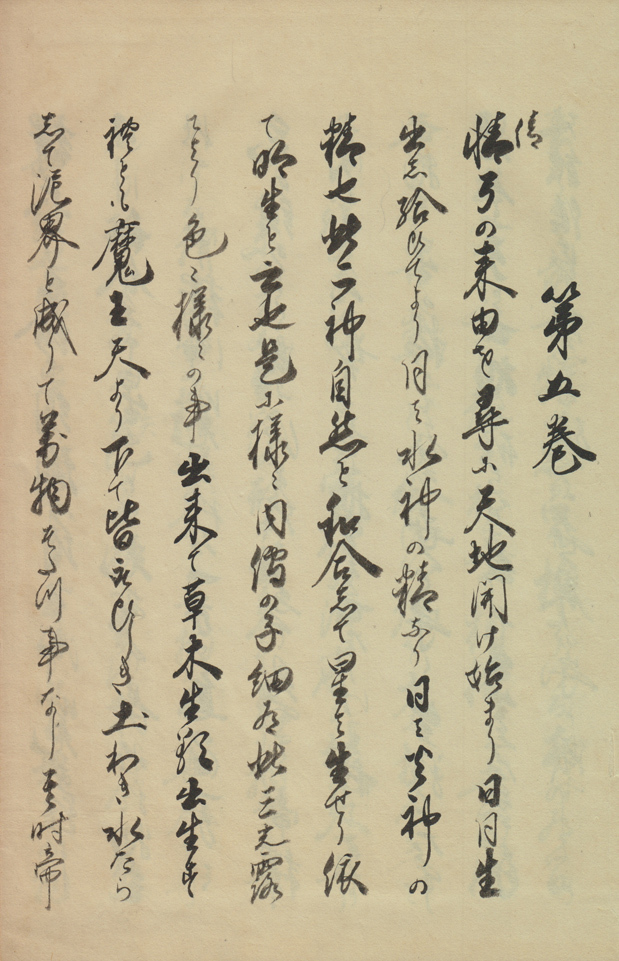 第五巻
情弓の来由を尋に天地開け始まり日月生
出し給ひてより月は水神の精なり日は火神の
精也此二神自然と和合して星を生せり依
て明生と云也是に様々内傳の子細有此三光露
てより色々様々の事出来て草木生類出生す
雖とも魔王天より下て皆
土わき水たら
して泥界と成りて万物そたつ事なし其時帝